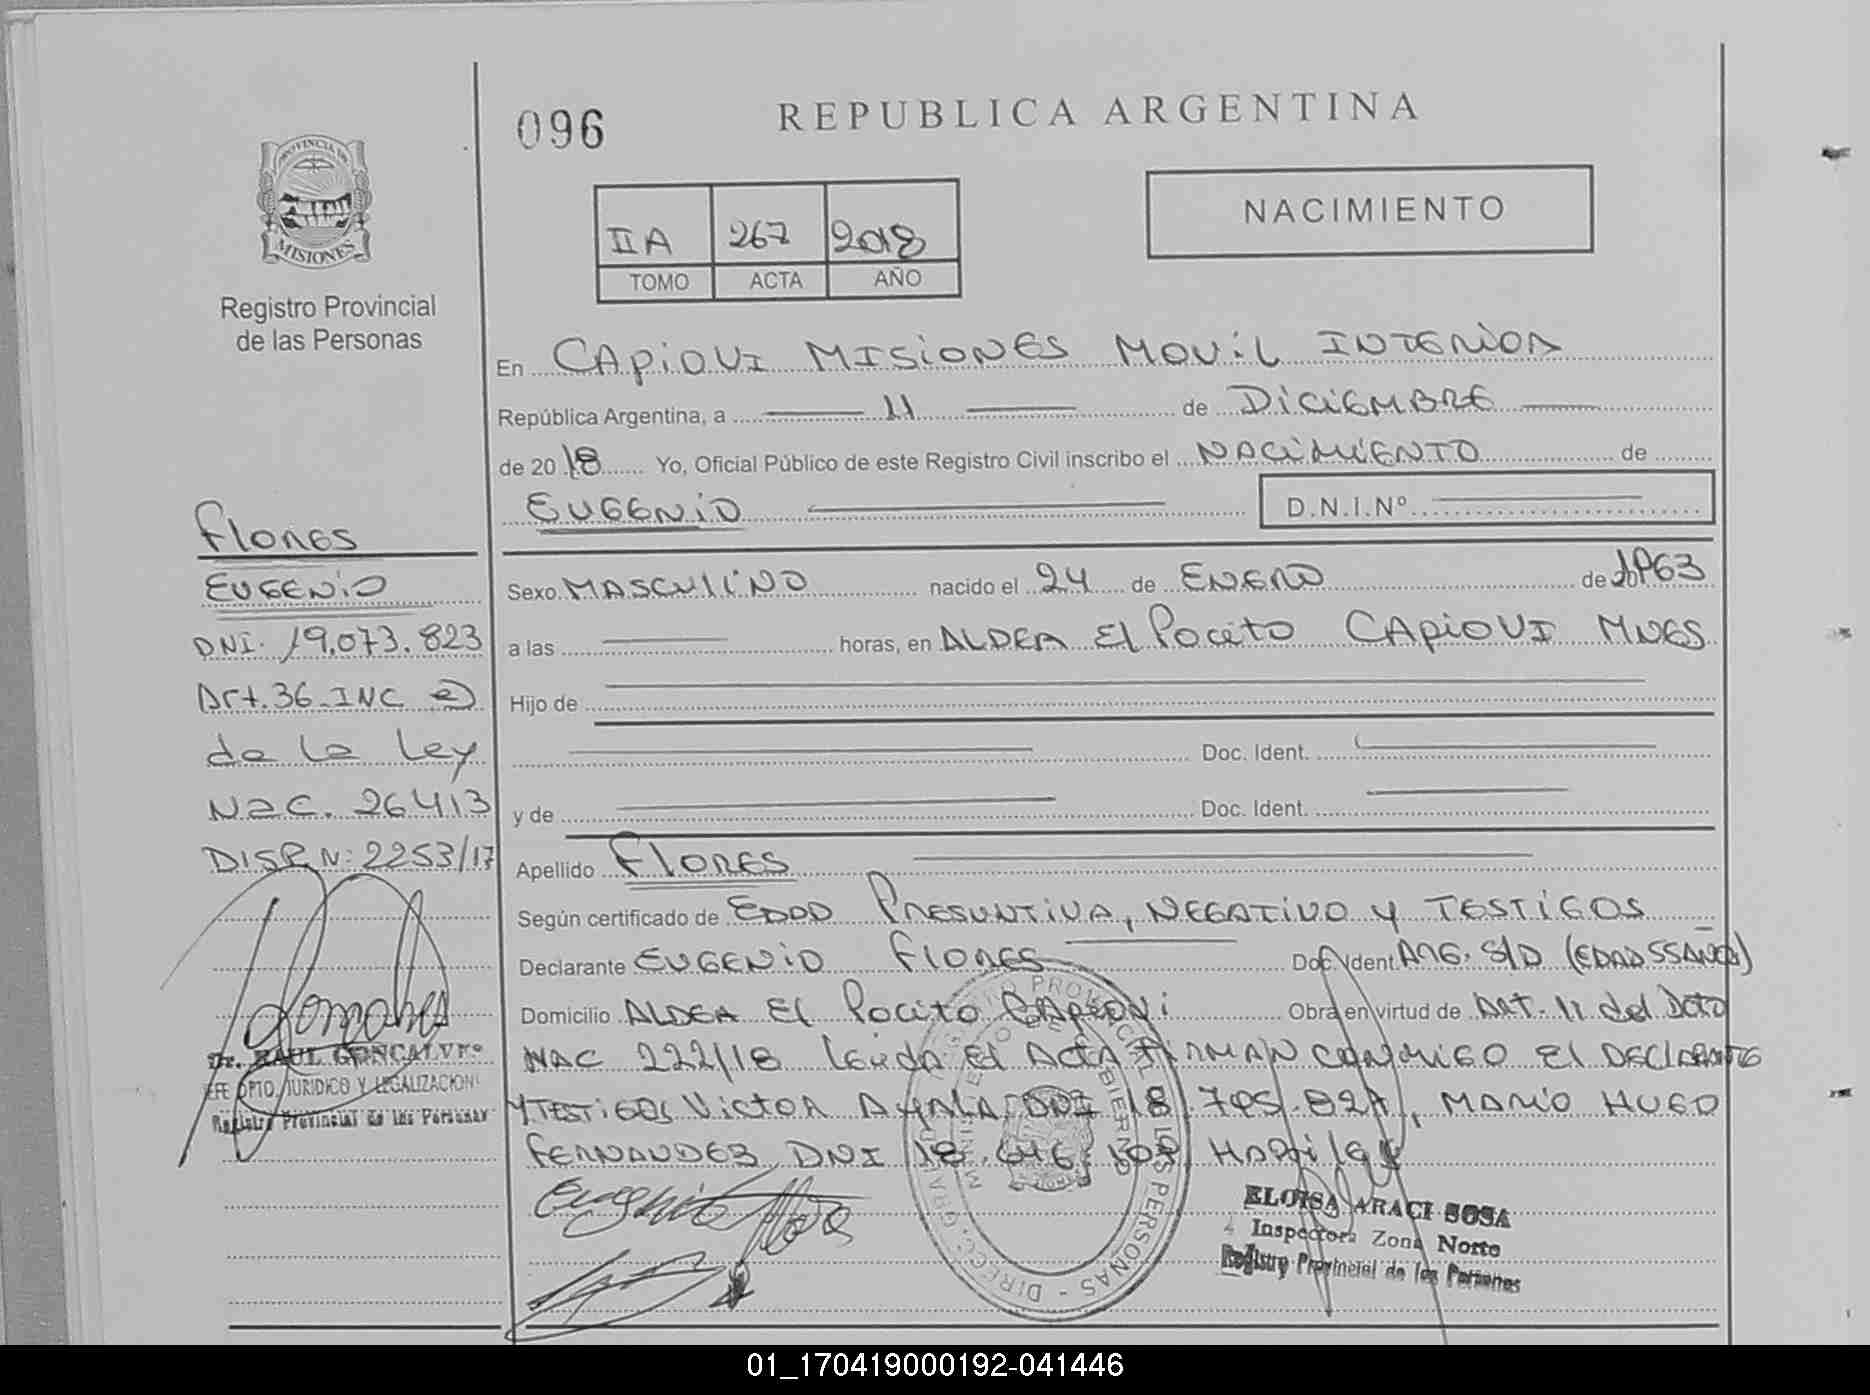 096
REPUBLICA ARGENTINA
PROVINCIA DE
MISIONES
Registro Provincial
de las Personas
IIA 267 2018
TOMO ACTA AÑO
NACIMIENTO
En CAPIOVI MISIONES MOVIL INTERIOR
República Argentina, a 11 de DICIEMBRE
de 20 18 Yo, Oficial Público de este Registro Civil inscribo el NACIMIENTO de
EUGENIO D.N.I.Nº
Sexo MASCULINO nacido el 24 de ENERO de 1963
a las horas, en ALDEA El Pocito CAPIOVI MNES
Hijo de
Doc. Ident.
y de Doc. Ident.
Apellido FLORES
Según certificado de EDAD PRESUNTIVA, NEGATIVO Y TESTIGOS
Declarante EUGENIO FLORES Doc. Ident ARG. S/D (EDAD 55 AÑOS)
Domicilio ALDEA El Pocito CAPIOVI Obra en virtud de ART. 11 del Dcto
NAC 222/18 leida el ACTA FIRMAN CONMIGO El DECLARANTE
Y TESTIGOS VICTOR AYALA DNI 18.705.827, MARIO HUGO
FERNANDEZ DNI 18.646.107
FLORES
EUGENIO
DNI. 19.073.823
Art. 36 INC e)
de la Ley
Nac. 26413
DISP. N: 2253/17
Dr. RAUL GONCALVES
JEFE DPTO. JURIDICO Y LEGALIZACION
Registro Provincial de las Personas
Eugenio Flores
ELOISA ARACI SOSA
Inspectora Zona Norte
Registro Provincial de las Personas
01_170419000192-041446